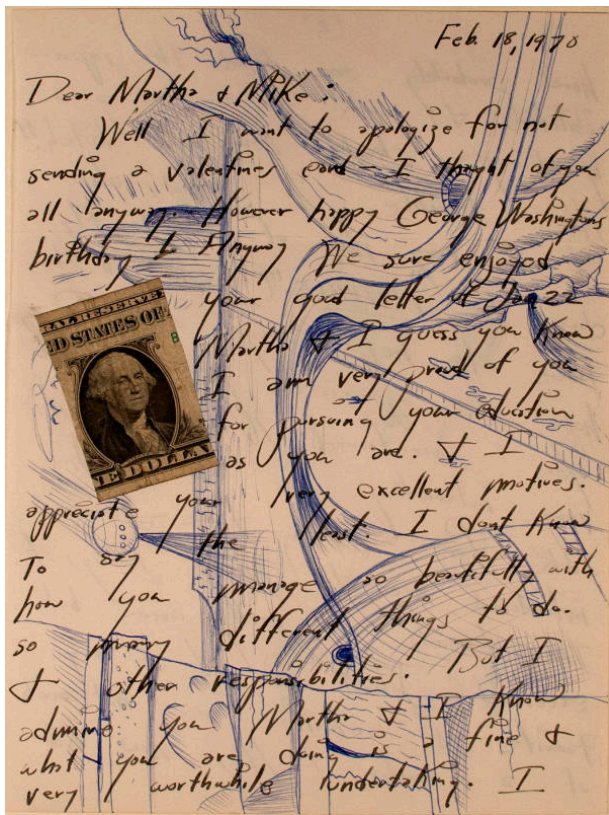 Feb. 18, 1970
Dear Martha & Mike:
Well I want to apologize for not
sending a valentines card – I thought of you
all anyway. However happy George Washingtons
birthday! Anyway We sure enjoyed
your good letter of Jan 22
Martha & I guess you Know
I am very proud of you
for pursuing your education
as you are. & I
appreciate your very excellent motives.
To say the least. I dont Know
how you manage so beautifull with
so many different things to do.
& other responsibilities. But I
admire you Martha & I Know
what you are doing is a fine &
very worthwhile undertaking. I
RAL RESERVE
ED STATES OF
B
E DOLLAR